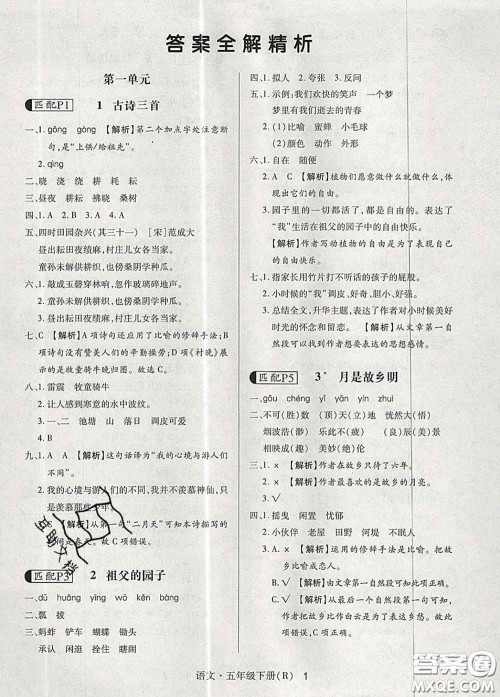 答案全解精析
第一单元
匹配P1 1 古诗三首
一、1. gōng gòng 【解析】第二个加点字处注意断
句,是“上供/给祖先”。
2. qìng
二、晓 浇 浇 耕 耗 耘
三、昼夜 昼夜 耕田 拂晓 桑树
四、1. A 2. B 3. A 4. A
五、四时田园杂兴(其三十一) [宋]范成大
昼出耘田夜绩麻,村庄儿女各当家。
童孙未解供耕织,也傍桑阴学种瓜。
六、1. 敲成玉磬穿林响,忽作玻璃碎地声。
2. 童孙未解供耕织,也傍桑阴学种瓜。
3. 昼出耘田夜绩麻,村庄儿女各当家。
七、C 【解析】A项诗句还应用了比喻的修辞手法;B项
诗句没有赞美人们的辛勤操劳;D项《村晚》展示
的是牧童骑牛晚归图。故C项正确。
八、1. 雷震 牧童骑牛
2. 让人感到寒意的水中的波纹。
3. 一、二 池塘 山 落日 调皮可爱
4. B
九、1. A 【解析】这句话译为“我的心境与游人们
不同”。
2. 我的心境与游人们的不同,我并不羡慕神仙,只
羡慕农民。
3. C 【解析】从第一句“二月天”可知本诗描写的
时间是春天。故C项错误。
匹配P3 2 祖父的园子
一、dù huāng yíng wō kěn bàng
二、瓢 拔
三、蚂蚱 铲车 蝴蝶 锄头
承认 闲逛 拴住 倭瓜
四、1. 拟人 2. 夸张 3. 反问
五、1. 示例:我们欢快的笑声 一个梦
梦里有我们逝去的青春
2. (1)比喻 蜜蜂 小毛球
(2)排比 榆树 蝴蝶 鱼儿
六、1. 自在 随便
2. A C 【解析】植物们愿意做什么就做什么,体
现出了它们的自由。
3. 园子里的一切都活了,都是自由的。表达了
“我”生活在祖父的园子中的自由快乐。
【解析】作者写动植物的自由是为了表现自己
的自由快乐。
七、1. 指家长用竹片打不听话的孩子的屁股。
2. 小时候的“我”调皮、好奇、机灵、可爱。
3. 总结全文,升华主题,表达了作者对童年美好
时光的怀念和留恋。【解析】从文章第一自
然段可以感受到作者对童年的留恋。
匹配P5 3* 月是故乡明
一、gǒu chéng yī yān yín jiǎo
二、不可(胜)数 (顶)天(立)地 恍然大(悟)
烟波浩(渺) 乐此不(疲) (离)乡(背)井
相映成(趣) 美妙(绝)伦
三、1. × 【解析】作者在故乡只待了六年。
2. × 【解析】作者最喜欢的是故乡的月亮。
3. √
四、1. 摇曳 闲置 花香
2. 小伙伴 老屋 田野 河堤 大槐树
3. A. × 【解析】这里运用的修辞手法是比喻。
故此项错误。
B. √ 【解析】由文章第一自然段可知此项正确。
C. √ 【解析】由文章第一自然段可知此项正确。
D. √
语文·五年级下册(R) 1
互助文档
答案圈
MXQE.COM